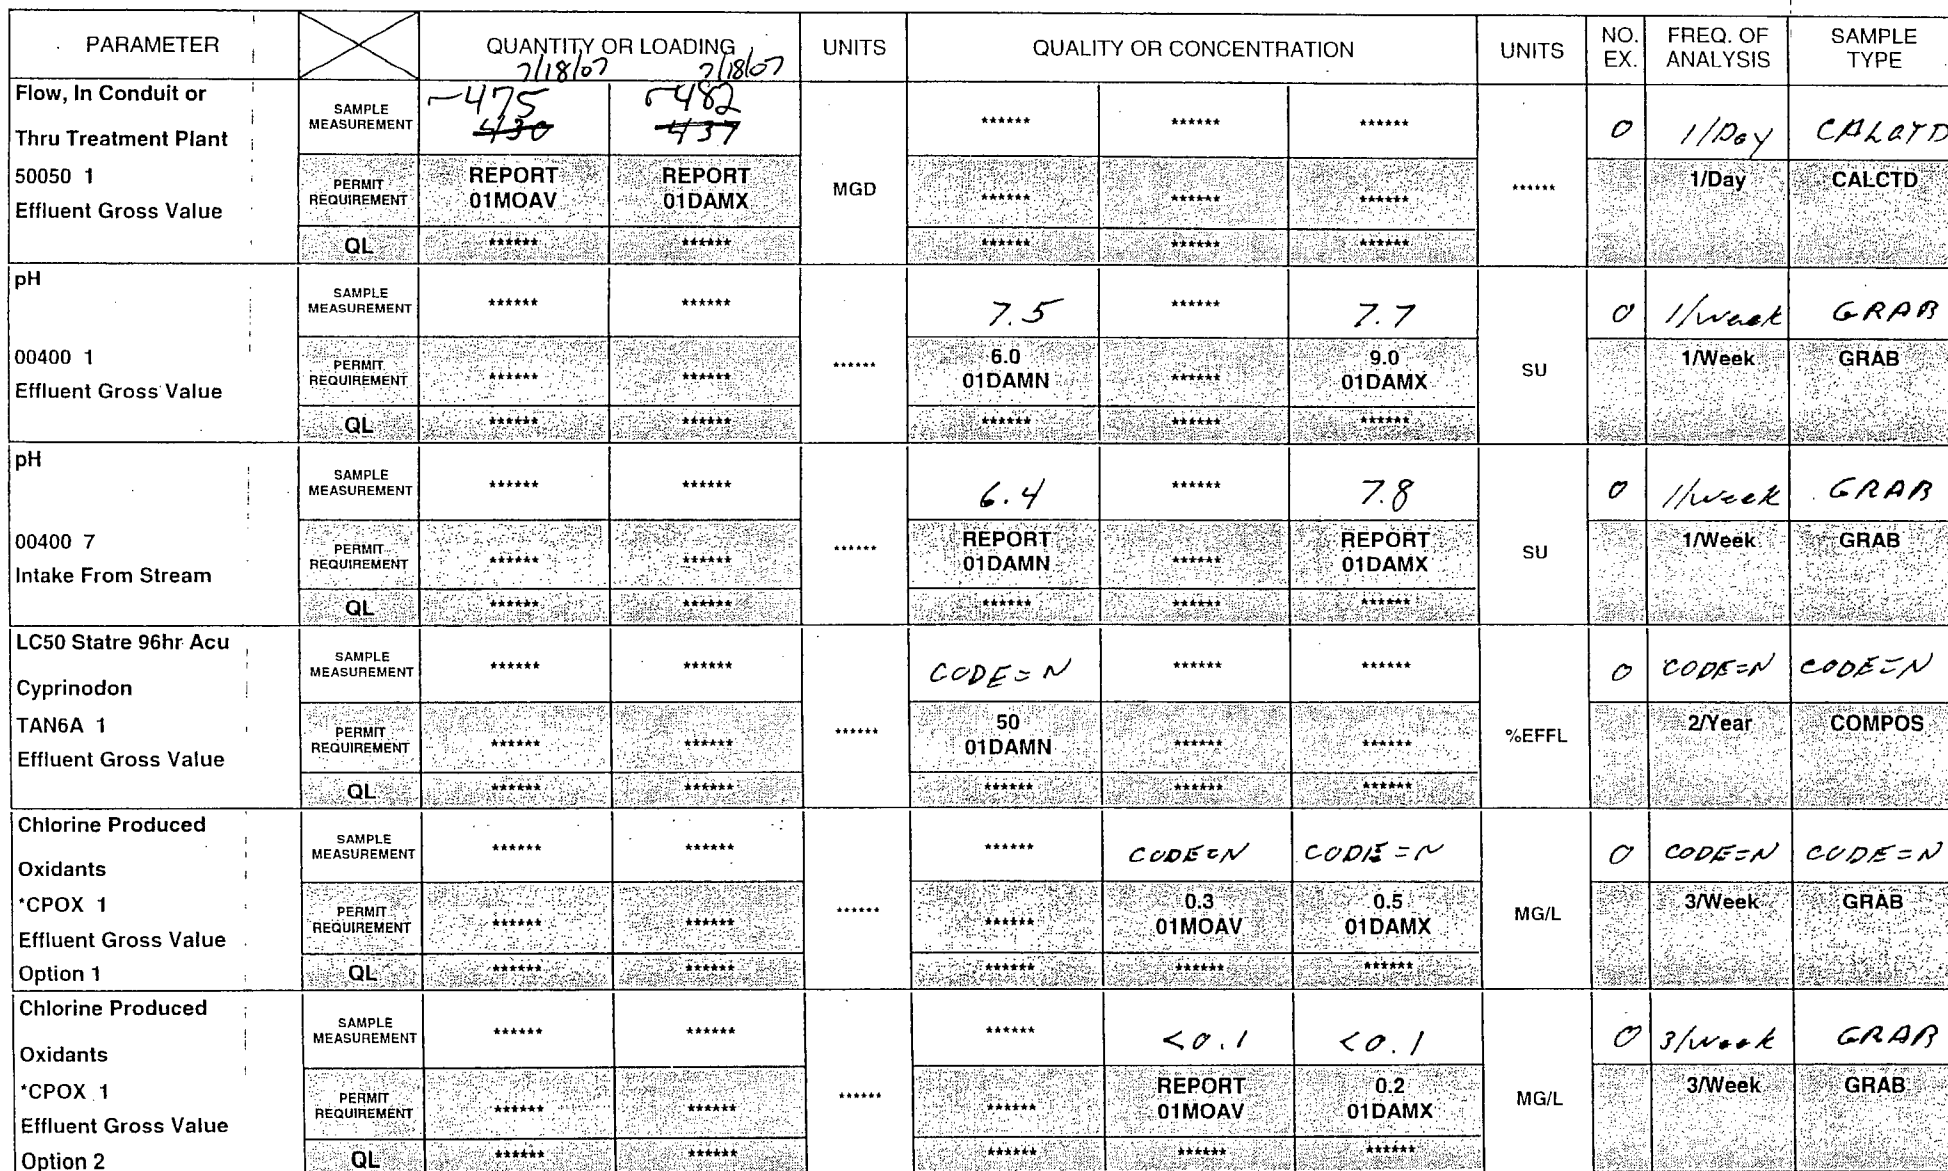 PARAMETER QUANTITY OR LOADING UNITS QUALITY OR CONCENTRATION UNITS NO. EX. FREQ. OF ANALYSIS SAMPLE TYPE
7/18/07 7/18/07
Flow, In Conduit or
Thru Treatment Plant
50050 1
Effluent Gross Value
SAMPLE MEASUREMENT 475 482 ****** ****** ****** 0 1/Day CALCTD
430 437
PERMIT REQUIREMENT REPORT 01MOAV REPORT 01DAMX MGD ****** ****** ****** ****** 1/Day CALCTD
QL ****** ****** ****** ****** ******
pH
00400 1
Effluent Gross Value
SAMPLE MEASUREMENT ****** ****** 7.5 ****** 7.7 0 1/week GRAB
PERMIT REQUIREMENT ****** ****** ****** 6.0 01DAMN ****** 9.0 01DAMX SU 1/Week GRAB
QL ****** ****** ****** ****** ******
pH
00400 7
Intake From Stream
SAMPLE MEASUREMENT ****** ****** 6.4 ****** 7.8 0 1/week GRAB
PERMIT REQUIREMENT ****** ****** ****** REPORT 01DAMN ****** REPORT 01DAMX SU 1/Week GRAB
QL ****** ****** ****** ****** ******
LC50 Statre 96hr Acu
Cyprinodon
TAN6A 1
Effluent Gross Value
SAMPLE MEASUREMENT ****** ****** CODE=N ****** ****** 0 CODE=N CODE=N
PERMIT REQUIREMENT ****** ****** ****** 50 01DAMN ****** ****** %EFFL 2/Year COMPOS
QL ****** ****** ****** ****** ******
Chlorine Produced
Oxidants
*CPOX 1
Effluent Gross Value
Option 1
SAMPLE MEASUREMENT ****** ****** ****** CODE=N CODE=N 0 CODE=N CODE=N
PERMIT REQUIREMENT ****** ****** ****** ****** 0.3 01MOAV 0.5 01DAMX MG/L 3/Week GRAB
QL ****** ****** ****** ****** ******
Chlorine Produced
Oxidants
*CPOX 1
Effluent Gross Value
Option 2
SAMPLE MEASUREMENT ****** ****** ****** <0.1 <0.1 0 3/week GRAB
PERMIT REQUIREMENT ****** ****** ****** ****** REPORT 01MOAV 0.2 01DAMX MG/L 3/Week GRAB
QL ****** ****** ****** ****** ******